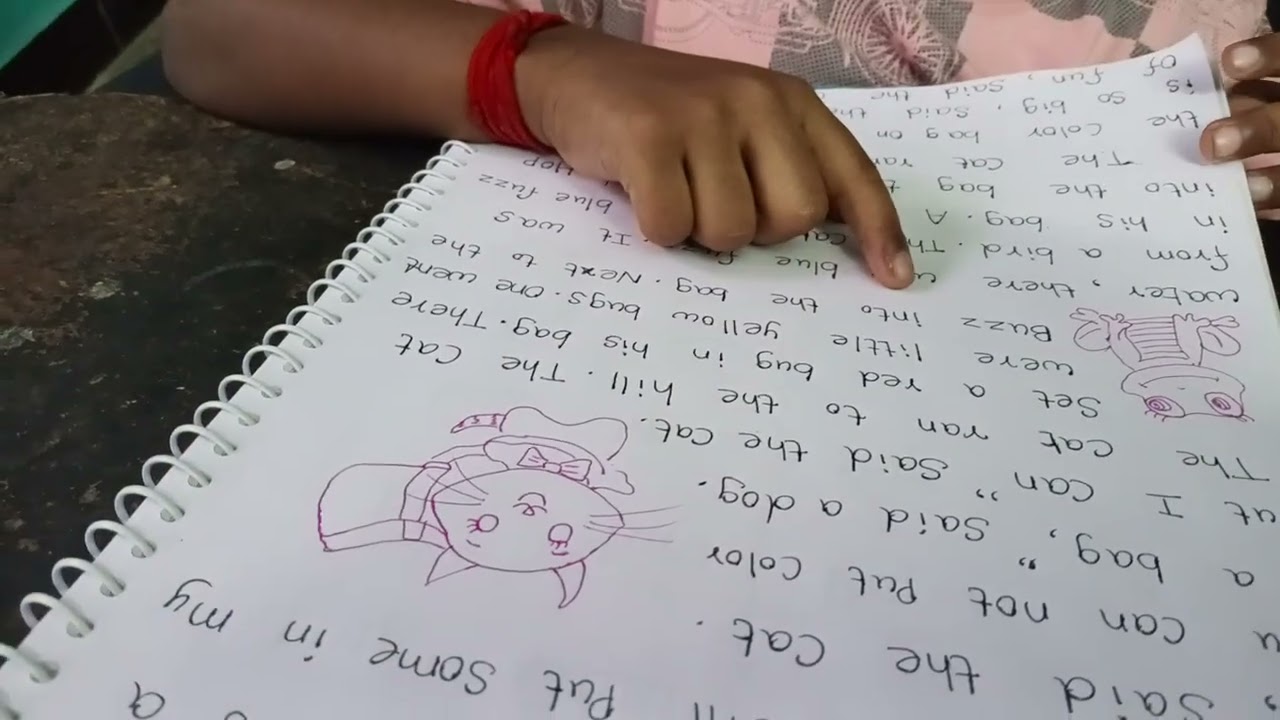 a
Put some in my
said the cat.
can not put color
a bag," said a dog.
I can" said the cat.
The cat ran to the hill. The cat
Set a red bug in his bag. There
were little yellow bugs. One went
Buzz into the bag. Next to the
water, there blue It was
from a bird. blue fuzz
in his bag. A Hop
into the bag
The cat ran
the color bag on
is so big, said
of fun, said the